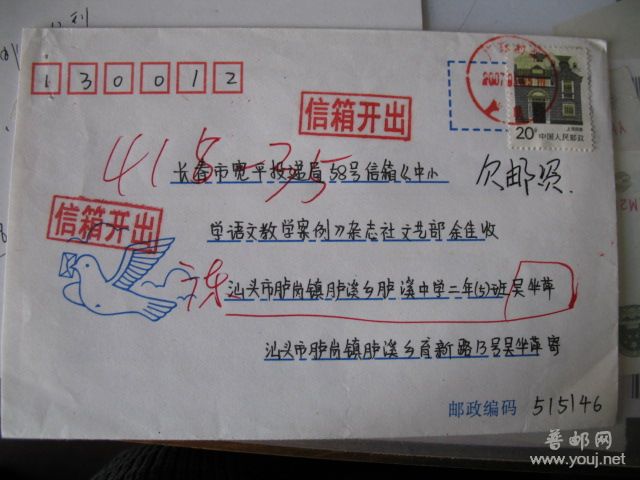 130012
2007
20分 中国人民邮政
信箱开出
418 35
长春市宽平投递局38号信箱《中小
欠邮资.
信箱开出
学语文教学案例》杂志社文艺部 余佳 收
汕头市胪岗镇胪溪乡胪溪中学二年(5)班吴华萍
汕头市胪岗镇胪溪乡育新路13号吴华萍寄
邮政编码 515146
普邮网
www.youj.net